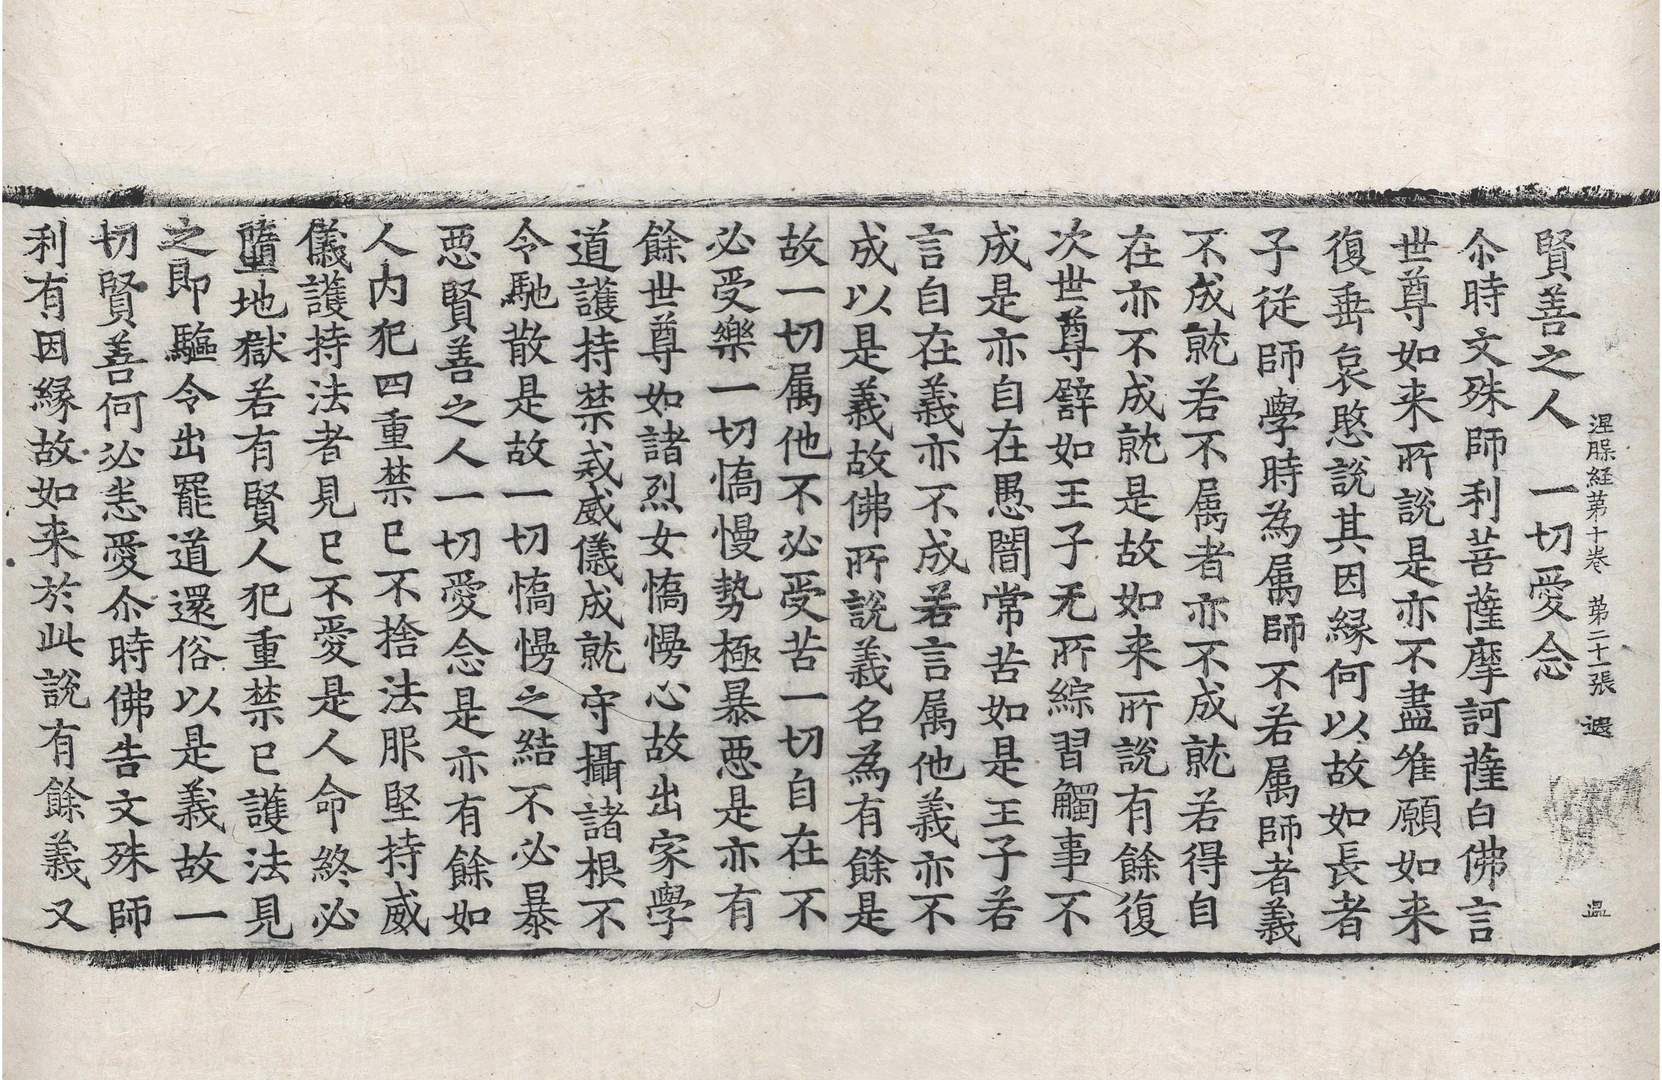 涅槃経第十巻 第二十一張 遐
賢善之人 一切愛念
尒時文殊師利菩薩摩訶薩白佛言
世尊如来所說是亦不盡唯願如来
復垂哀愍說其因緣何以故如長者
子從師學時為属師不若属師者義
不成就若不属者亦不成就若得自
在亦不成就是故如来所說有餘復
次世尊譬如王子无所綜習觸事不
成是亦自在愚闇常苦如是王子若
言自在義亦不成若言属他義亦不
成以是義故佛所說義名為有餘是
故一切属他不必受苦一切自在不
必受樂一切憍慢勢極暴惡是亦有
餘世尊如諸烈女憍慢心故出家學
道護持禁戒威儀成就守攝諸根不
令馳散是故一切憍慢之結不必暴
惡賢善之人一切愛念是亦有餘如
人内犯四重禁已不捨法服堅持威
儀護持法者見已不愛是人命終必
墮地獄若有賢人犯重禁已護法見
之即驅令出罷道還俗以是義故一
切賢善何必恙愛尒時佛告文殊師
利有因緣故如来於此說有餘義又